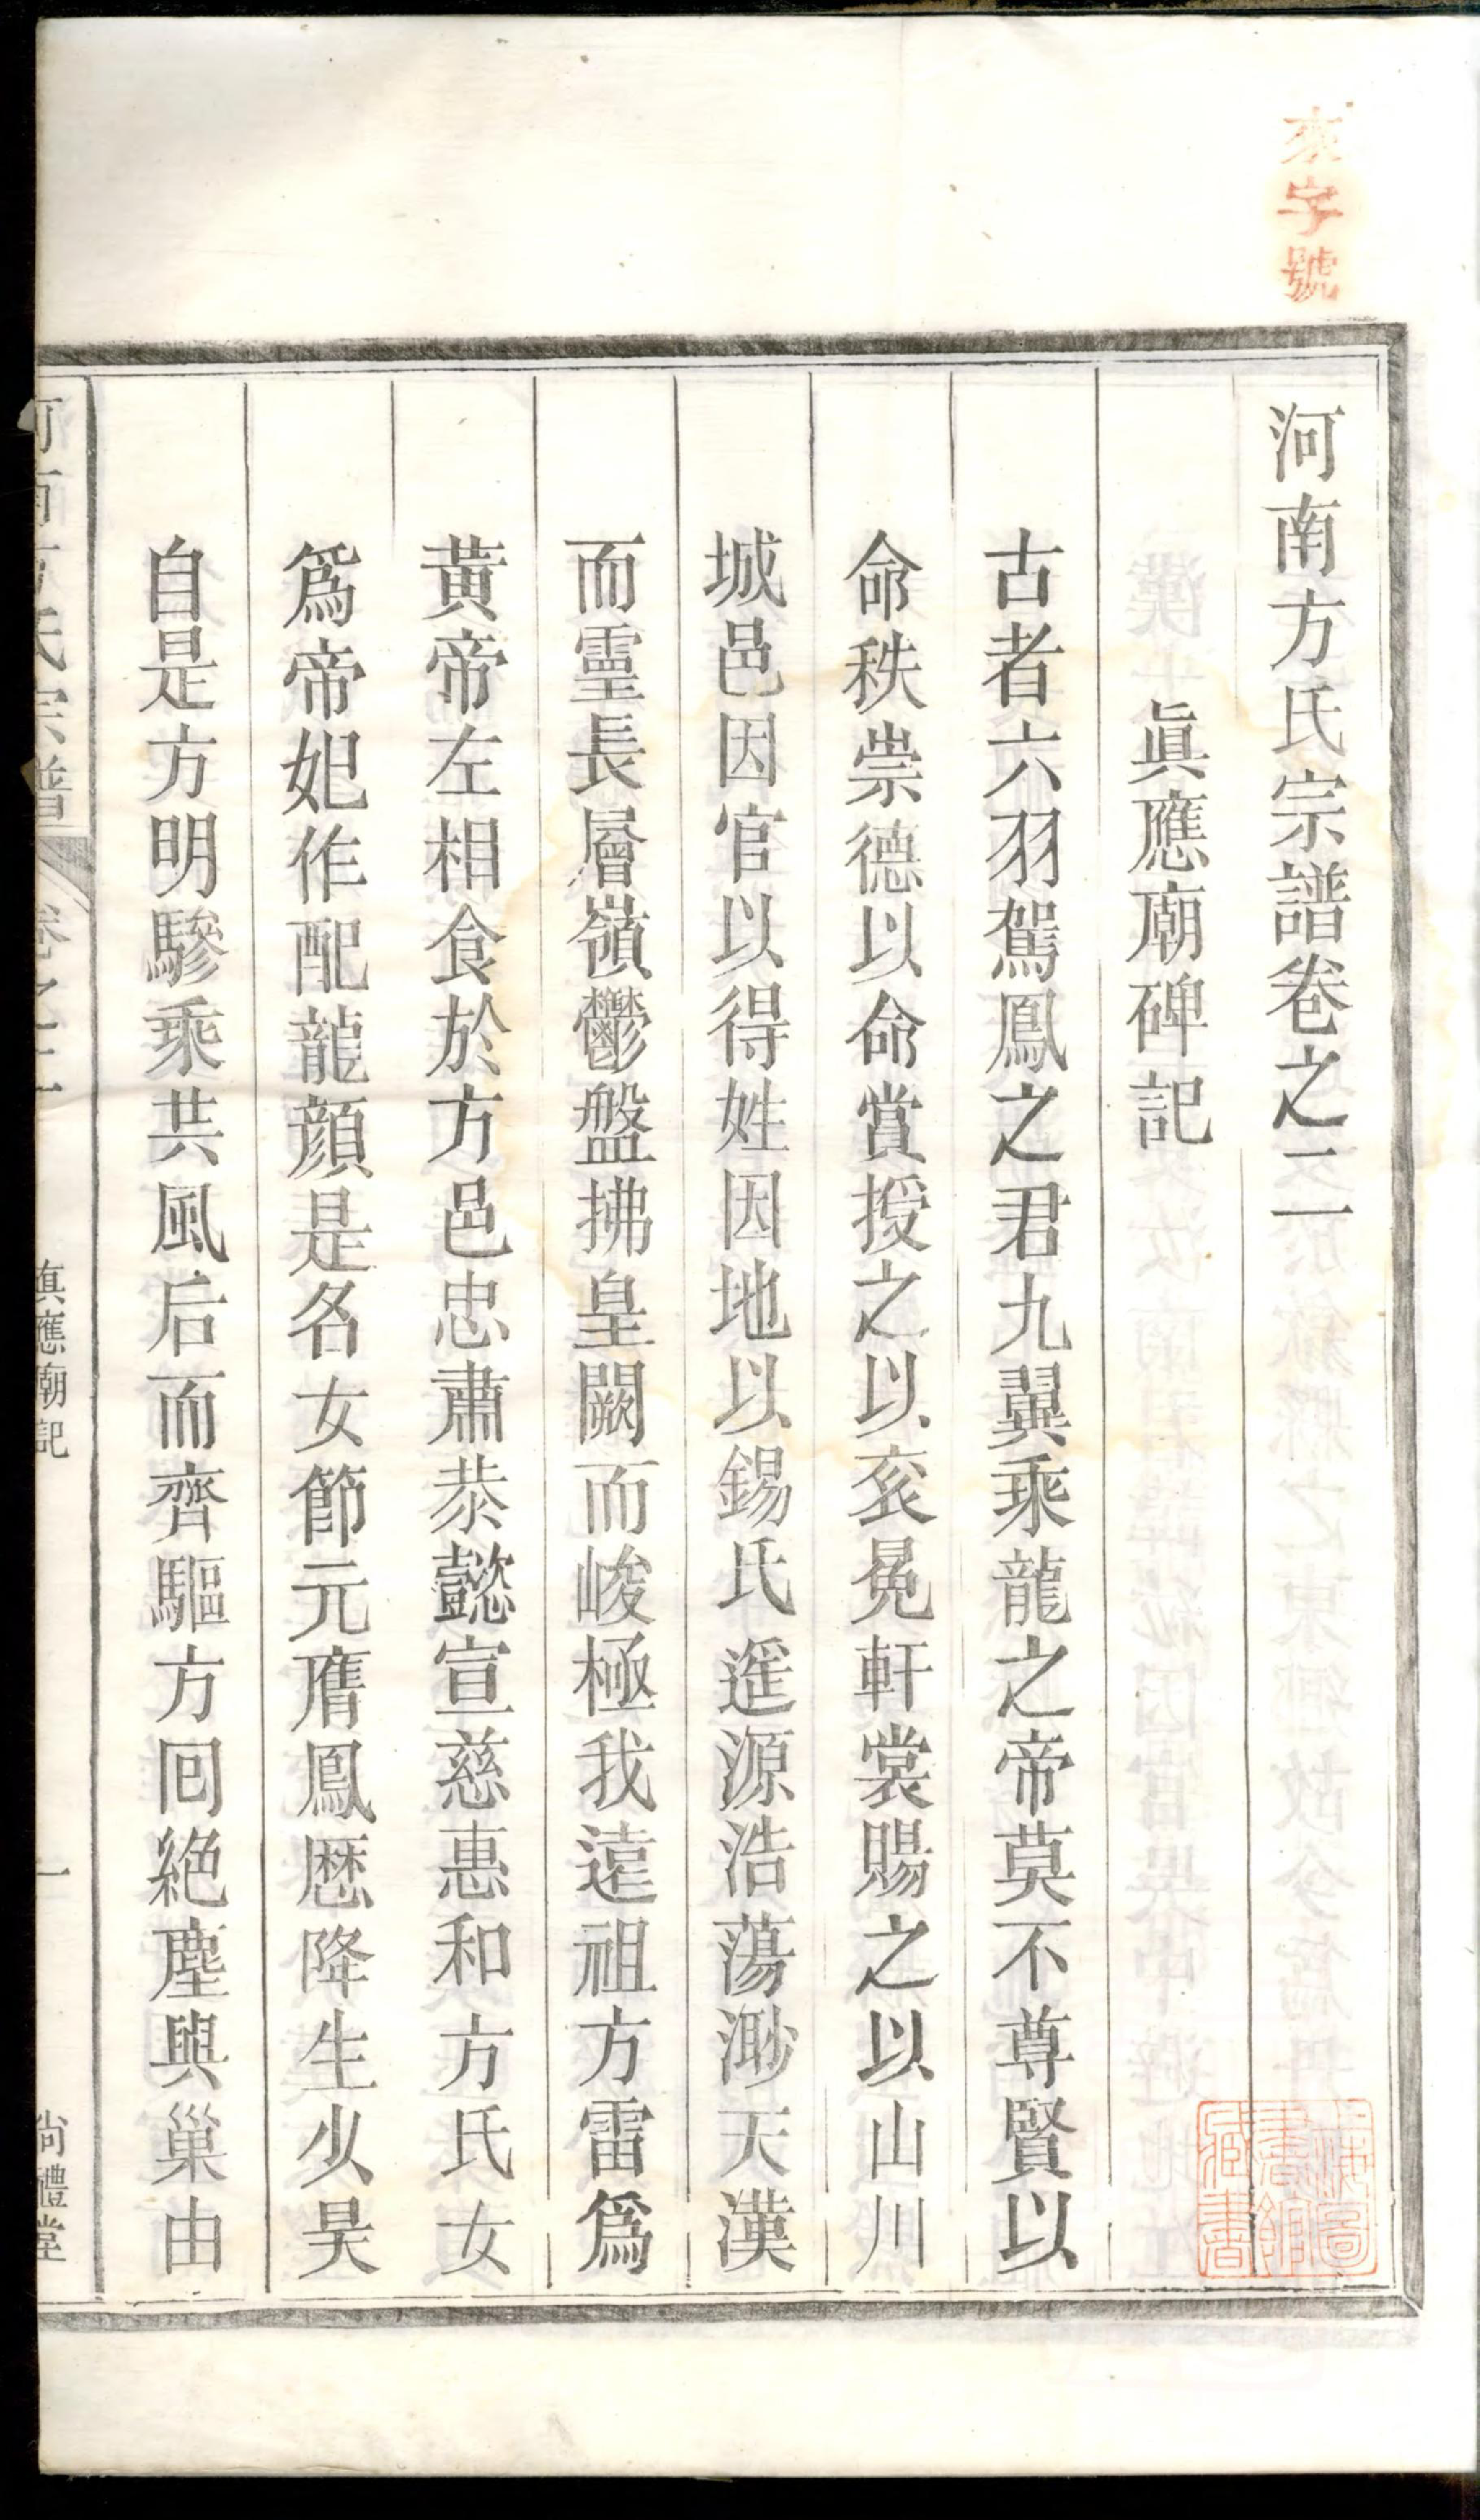 來字號
河南方氏宗譜卷之二
眞應廟碑記
古者六羽駕鳳之君九翼乘龍之帝莫不尊賢以
命秩崇德以命賞授之以衮冕軒裳賜之以山川
城邑因官以得姓因地以錫氏遥源浩蕩渺天漢
而靈長層嶺鬱盤拂皇闕而峻極我遠祖方雷爲
黃帝左相食於方邑忠肅恭懿宣慈惠和方氏女
爲帝妃作配龍顏是名女節元膺鳳厯降生少昊
自是方明驂乘共風后而齊驅方回絶塵與巢由
河南方氏宗譜 卷之二 眞應廟記 一 尚禮堂